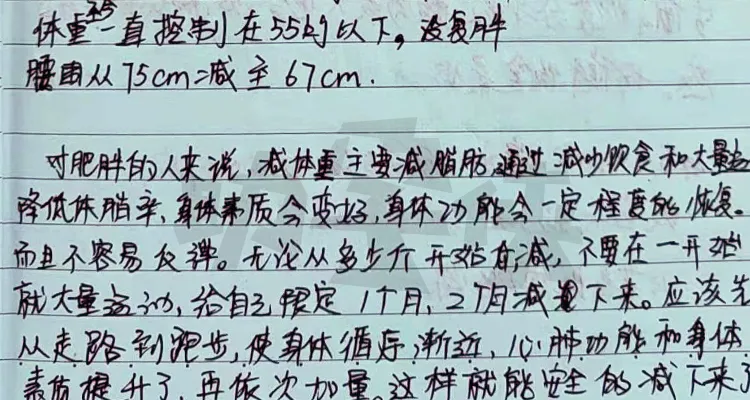 体重一直控制在55kg以下。没复胖
腰围从75cm减至67cm.
对肥胖的人来说，减体重主要减脂肪通过减少饮食和大量运
降低体脂率，身体素质会变好，身体功能会一定程度的恢复。
而且不容易反弹。无论从多少斤开始减，不要在一开始
就大量运动，给自己限定1个月，2个月减下来。应该先
从走路到跑步，使身体循序渐近，心肺功能和身体
素质提升了，再依次加量。这样就能安全的减下来了